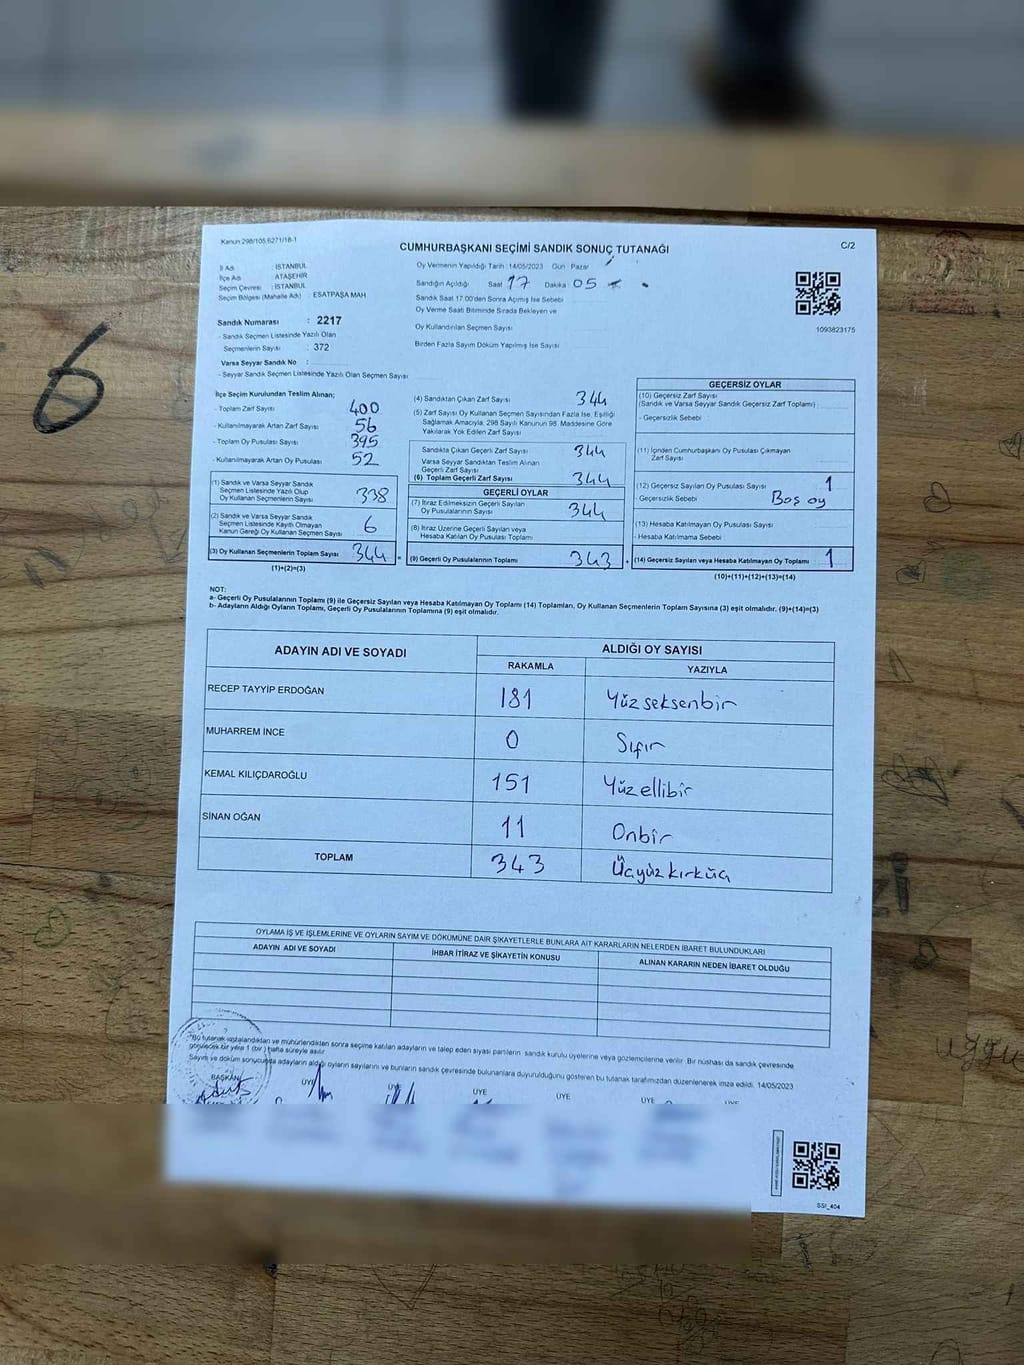 Kanun 298/105,6271/18-1
CUMHURBAŞKANI SEÇİMİ SANDIK SONUÇ TUTANAĞI
C/2
İl Adı : İSTANBUL
İlçe Adı : ATAŞEHİR
Seçim Çevresi : İSTANBUL
Seçim Bölgesi (Mahalle Adı) : ESATPAŞA MAH
Sandık Numarası : 2217
- Sandık Seçmen Listesinde Yazılı Olan
Seçmenlerin Sayısı : 372
Varsa Seyyar Sandık No :
- Seyyar Sandık Seçmen Listesinde Yazılı Olan Seçmen Sayısı
Oy Vermenin Yapıldığı Tarih : 14/05/2023 Gün : Pazar
Sandığın Açıldığı Saat 17 Dakika 05
Sandık Saat 17.00'den Sonra Açılmış İse Sebebi
Oy Verme Saati Bitiminde Sırada Bekleyen ve
Oy Kullandırılan Seçmen Sayısı
Birden Fazla Sayım Döküm Yapılmış İse Sayısı
1093823175
İlçe Seçim Kurulundan Teslim Alınan;
- Toplam Zarf Sayısı 400
- Kullanılmayarak Artan Zarf Sayısı 56
- Toplam Oy Pusulası Sayısı 395
- Kullanılmayarak Artan Oy Pusulası 52
(1) Sandık ve Varsa Seyyar Sandık
Seçmen Listesinde Yazılı Olup
Oy Kullanan Seçmenlerin Sayısı 338
(2) Sandık ve Varsa Seyyar Sandık
Seçmen Listesinde Kayıtlı Olmayan
Kanun Gereği Oy Kullanan Seçmen Sayısı 6
(3) Oy Kullanan Seçmenlerin Toplam Sayısı 344
(1)+(2)=(3)
(4) Sandıktan Çıkan Zarf Sayısı 344
(5) Zarf Sayısı Oy Kullanan Seçmen Sayısından Fazla İse, Eşitliği
Sağlamak Amacıyla, 298 Sayılı Kanunun 98. Maddesine Göre
Yakılarak Yok Edilen Zarf Sayısı
Sandıkta Çıkan Geçerli Zarf Sayısı 344
Varsa Seyyar Sandıktan Teslim Alınan
Geçerli Zarf Sayısı
(6) Toplam Geçerli Zarf Sayısı 344
GEÇERLİ OYLAR
(7) İtiraz Edilmeksizin Geçerli Sayılan
Oy Pusulalarının Sayısı 344
(8) İtiraz Üzerine Geçerli Sayılan veya
Hesaba Katılan Oy Pusulası Toplamı
(9) Geçerli Oy Pusulalarının Toplamı 343
GEÇERSİZ OYLAR
(10) Geçersiz Zarf Sayısı
(Sandık ve Varsa Seyyar Sandık Geçersiz Zarf Toplamı)
- Geçersizlik Sebebi
(11) İçinden Cumhurbaşkanı Oy Pusulası Çıkmayan
Zarf Sayısı
(12) Geçersiz Sayılan Oy Pusulası Sayısı 1
- Geçersizlik Sebebi Boş oy
(13) Hesaba Katılmayan Oy Pusulası Sayısı
- Hesaba Katılmama Sebebi
(14) Geçersiz Sayılan veya Hesaba Katılmayan Oy Toplamı 1
(10)+(11)+(12)+(13)=(14)
NOT:
a- Geçerli Oy Pusulalarının Toplamı (9) ile Geçersiz Sayılan veya Hesaba Katılmayan Oy Toplamı (14) Toplamları, Oy Kullanan Seçmenlerin Toplam Sayısına (3) eşit olmalıdır. (9)+(14)=(3)
b- Adayların Aldığı Oyların Toplamı, Geçerli Oy Pusulalarının Toplamına (9) eşit olmalıdır.
ADAYIN ADI VE SOYADI
ALDIĞI OY SAYISI
RAKAMLA YAZIYLA
RECEP TAYYİP ERDOĞAN 181 Yüz seksenbir
MUHARREM İNCE 0 Sıfır
KEMAL KILIÇDAROĞLU 151 Yüzellibir
SİNAN OĞAN 11 Onbir
TOPLAM 343 Üçyüz kırküç
OYLAMA İŞ VE İŞLEMLERİNE VE OYLARIN SAYIM VE DÖKÜMÜNE DAİR ŞİKAYETLERLE BUNLARA AİT KARARLARIN NELERDEN İBARET BULUNDUKLARI
ADAYIN ADI VE SOYADI
İHBAR İTİRAZ VE ŞİKAYETİN KONUSU
ALINAN KARARIN NEDEN İBARET OLDUĞU
"Bu tutanak imzalandıktan ve mühürlendikten sonra seçime katılan adayların ve talep eden siyasi partilerin sandık kurulu üyelerine veya gözlemcilerine verilir. Bir nüshası da sandık çevresinde
görülecek bir yere 1 (bir) hafta süreyle asılır.
Sayım ve döküm sonucunda adayların aldığı oyların sayılarını ve bunların sandık çevresinde bulunanlara duyurulduğunu gösteren bu tutanak tarafımızdan düzenlenerek imza edildi. 14/05/2023
BAŞKAN ÜYE ÜYE ÜYE ÜYE ÜYE ÜYE
SSI_404
6